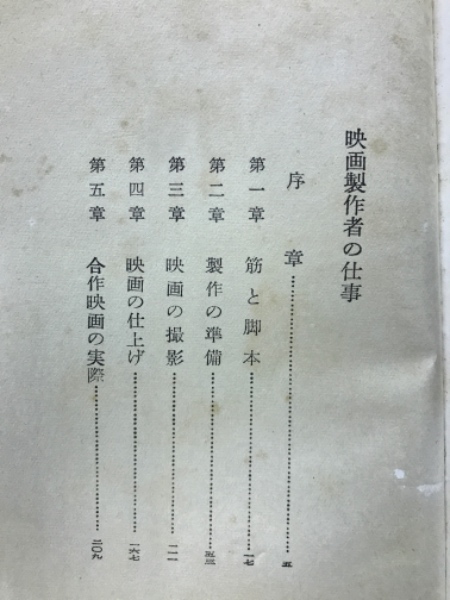 映画製作者の仕事
序章……五
第一章 筋と脚本……一七
第二章 製作の準備……五三
第三章 映画の撮影……一一一
第四章 映画の仕上げ……一六七
第五章 合作映画の実際……二〇九